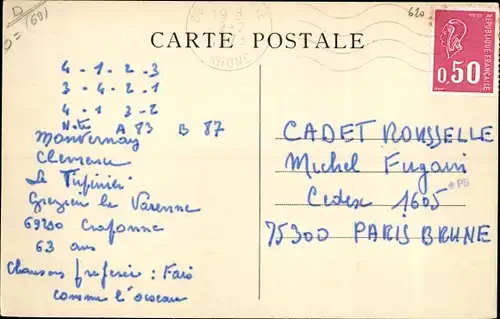 D (69)
620
CARTE POSTALE
RÉPUBLIQUE FRANÇAISE
0,50
4 - 1 - 2 - 3
3 - 4 - 2 - 1
4 - 1 3 - 2
Notes A 83 B 87
Montvernay
Clemence
Le
Grezieu la Varenne
69290 Craponne
63 ans
Chansons preferée : Fais
comme l'oiseau
CADET ROUSSELLE
Michel Fugain
Cedex 1605
*PB
75300 PARIS BRUNE